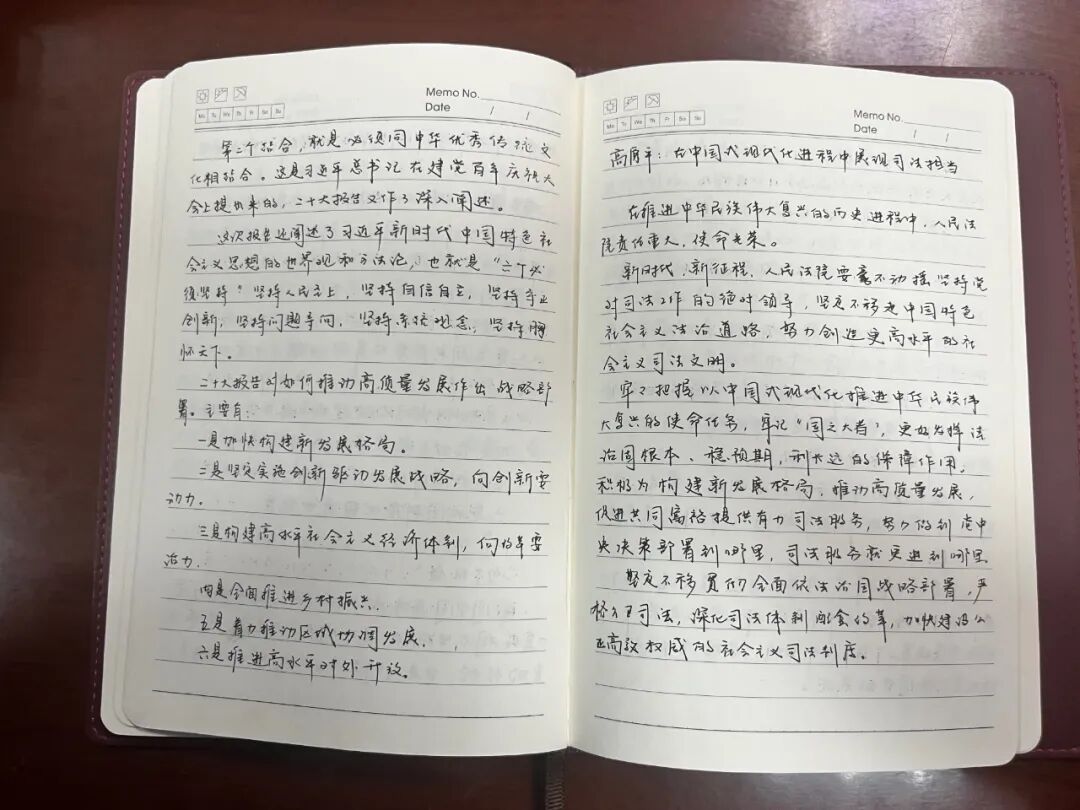 Memo No.
Date / /
Mo Tu We Th Fr Sa Su
第二个结合,就是必须同中华优秀传统文
化相结合。这是习近平总书记在建党百年庆祝大
会上提出来的,二十大报告又作了深入阐述。
这次报告还阐述了习近平新时代中国特色社
会主义思想的世界观和方法论,也就是“六个必
须坚持”坚持人民至上,坚持自信自立,坚持守正
创新,坚持问题导向,坚持系统观念,坚持胸
怀天下。
二十大报告对如何推动高质量发展作出战略部
署。主要有:
一是加快构建新发展格局。
二是坚定实施创新驱动发展战略,向创新要
动力.
三是构建高水平社会主义经济体制,向改革要
活力.
四是全面推进乡村振兴.
五是着力推动区域协调发展.
六是推进高水平对外开放。
Memo No.
Date / /
Mo Tu We Th Fr Sa Su
在中国式现代化进程中展现司法担当
在推进中华民族伟大复兴的历史进程中,人民法
院责任重大,使命光荣。
新时代,新征程,人民法院要毫不动摇坚持党
对司法工作的绝对领导,坚定不移走中国特色
社会主义法治道路,努力创造更高水平的社
会主义司法文明。
牢々把握以中国式现代化推进中华民族伟
大复兴的使命任务,牢记“国之大者”,更好发挥法
治固根本、稳预期,利长远的保障作用,
积极为构建新发展格局,推动高质量发展,
促进共同富裕提供有力司法服务,努力做到党中
央决策部署到哪里,司法服务就跟进到哪里
坚定不移贯彻全面依法治国战略部署,严
格公正司法,深化司法体制配套改革,加快建设公
正高效权威的社会主义司法制度。